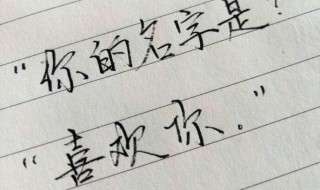 “你的名字是?
“喜欢你.”